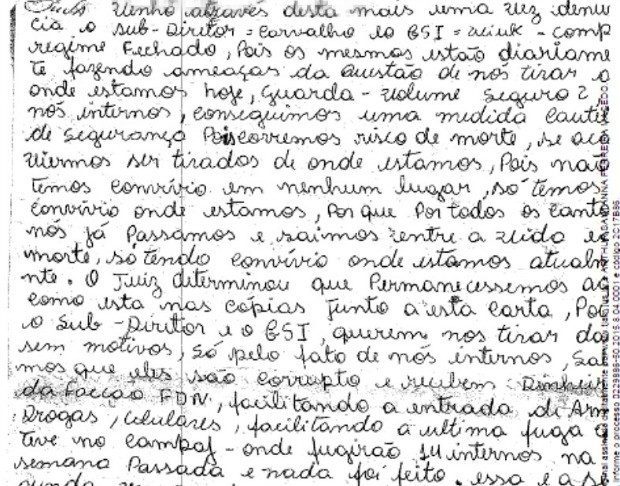 venho através desta mais uma vez denu
cia o sub-Diretor = Carvalho e o GSI = = comp
regime Fechado, Pois os mesmos estão diariame
te fazendo ameaças da questão de nos tirar
onde estamos hoje, guarda-volume Seguro 2,
nós internos, conseguimos uma medida cautel
de Segurança Pois corremos risco de morte, se aco
viermos ser tirados de onde estamos, Pois não
temos convívio em nenhum lugar, só temos
convívio onde estamos, Por que Por todos os canto
nós já Passamos e saimos entre a vida e
morte, só tendo convívio onde estamos atualm
nte. O Juiz determinou que Permanecessemos
como esta nas cópias junto a esta carta, Poi
o Sub-Diretor e o GSI, querem nos tirar da
sem motivos, só pelo fato de nós internos Sa
mos que eles são corrupto e recebem Dinheir
da Facção FDN, facilitando a entrada di Arm
Drogas, celulares, facilitando a ultima fuga
teve no compaj - onde fugirão internos na
semana Passada e nada foi feito. essa e a se